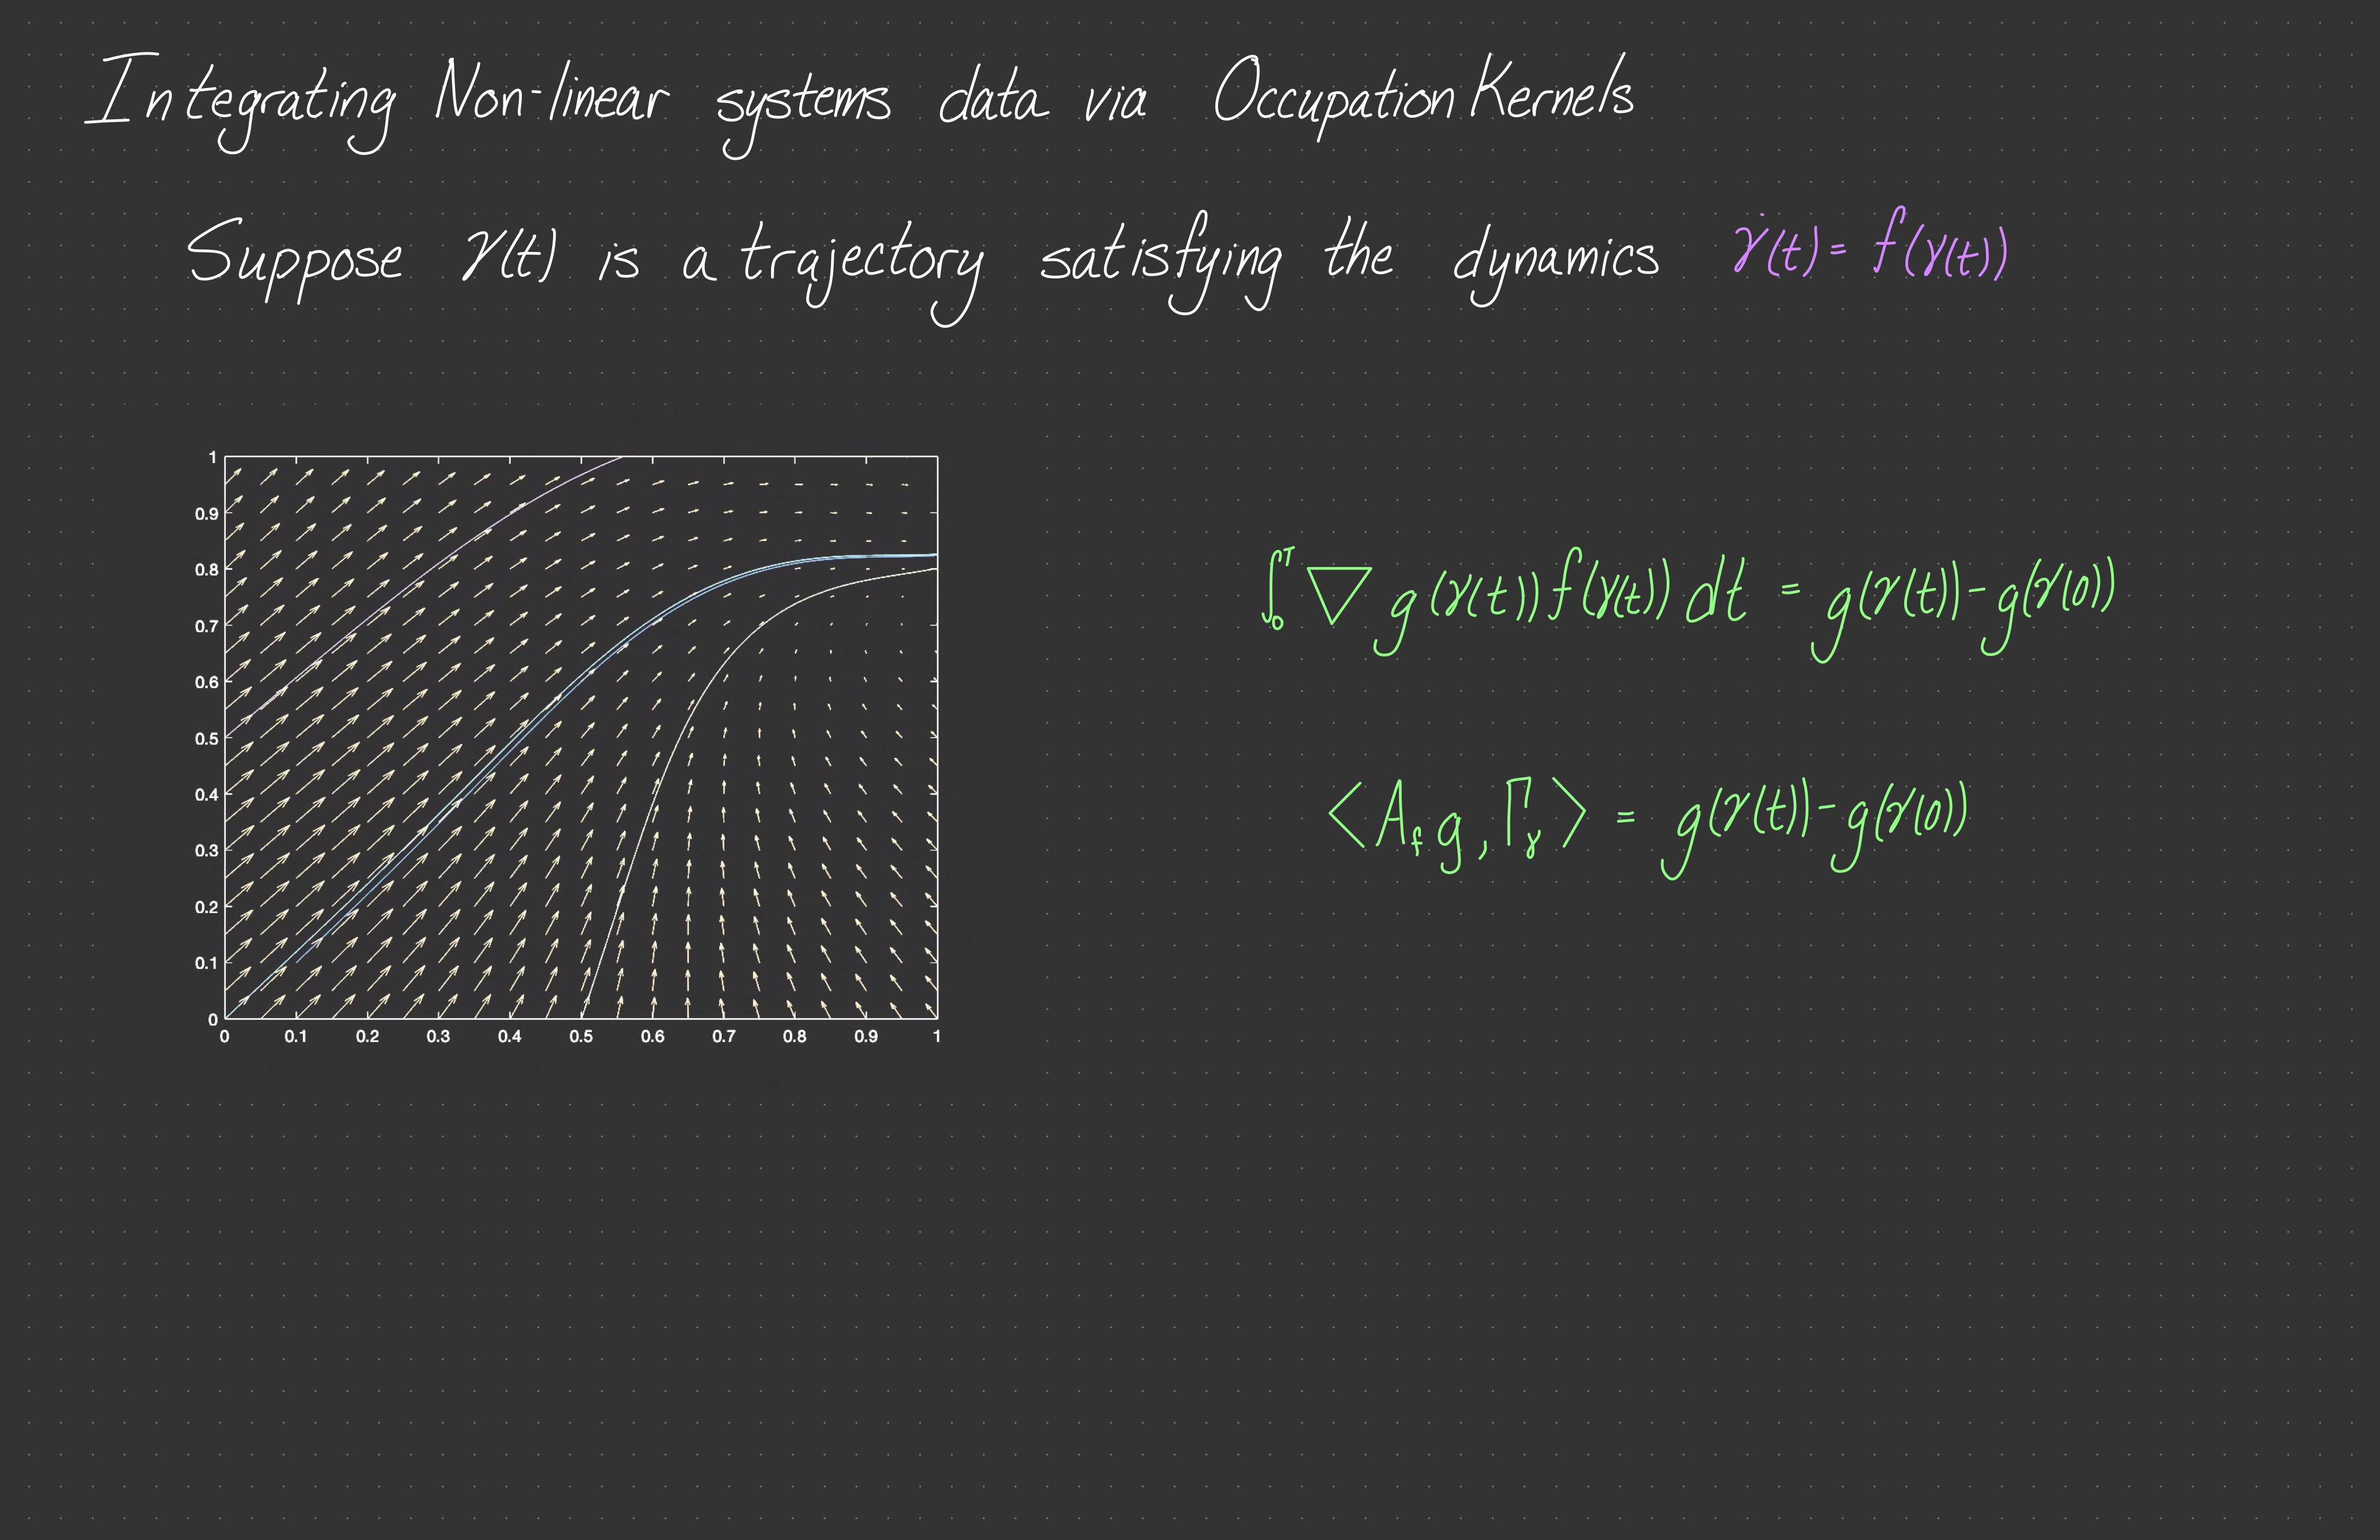 Integrating Non-linear systems data via Occupation Kernels
Suppose γ(t) is a trajectory satisfying the dynamics γ̇(t) = f(γ(t))
1
0.9
0.8
0.7
0.6
0.5
0.4
0.3
0.2
0.1
0
0 0.1 0.2 0.3 0.4 0.5 0.6 0.7 0.8 0.9 1
∫₀ᵀ ∇g(γ(t)) f(γ(t)) dt = g(γ(t)) - g(γ(0))
⟨A_f g, Γ_γ⟩ = g(γ(t)) - g(γ(0))